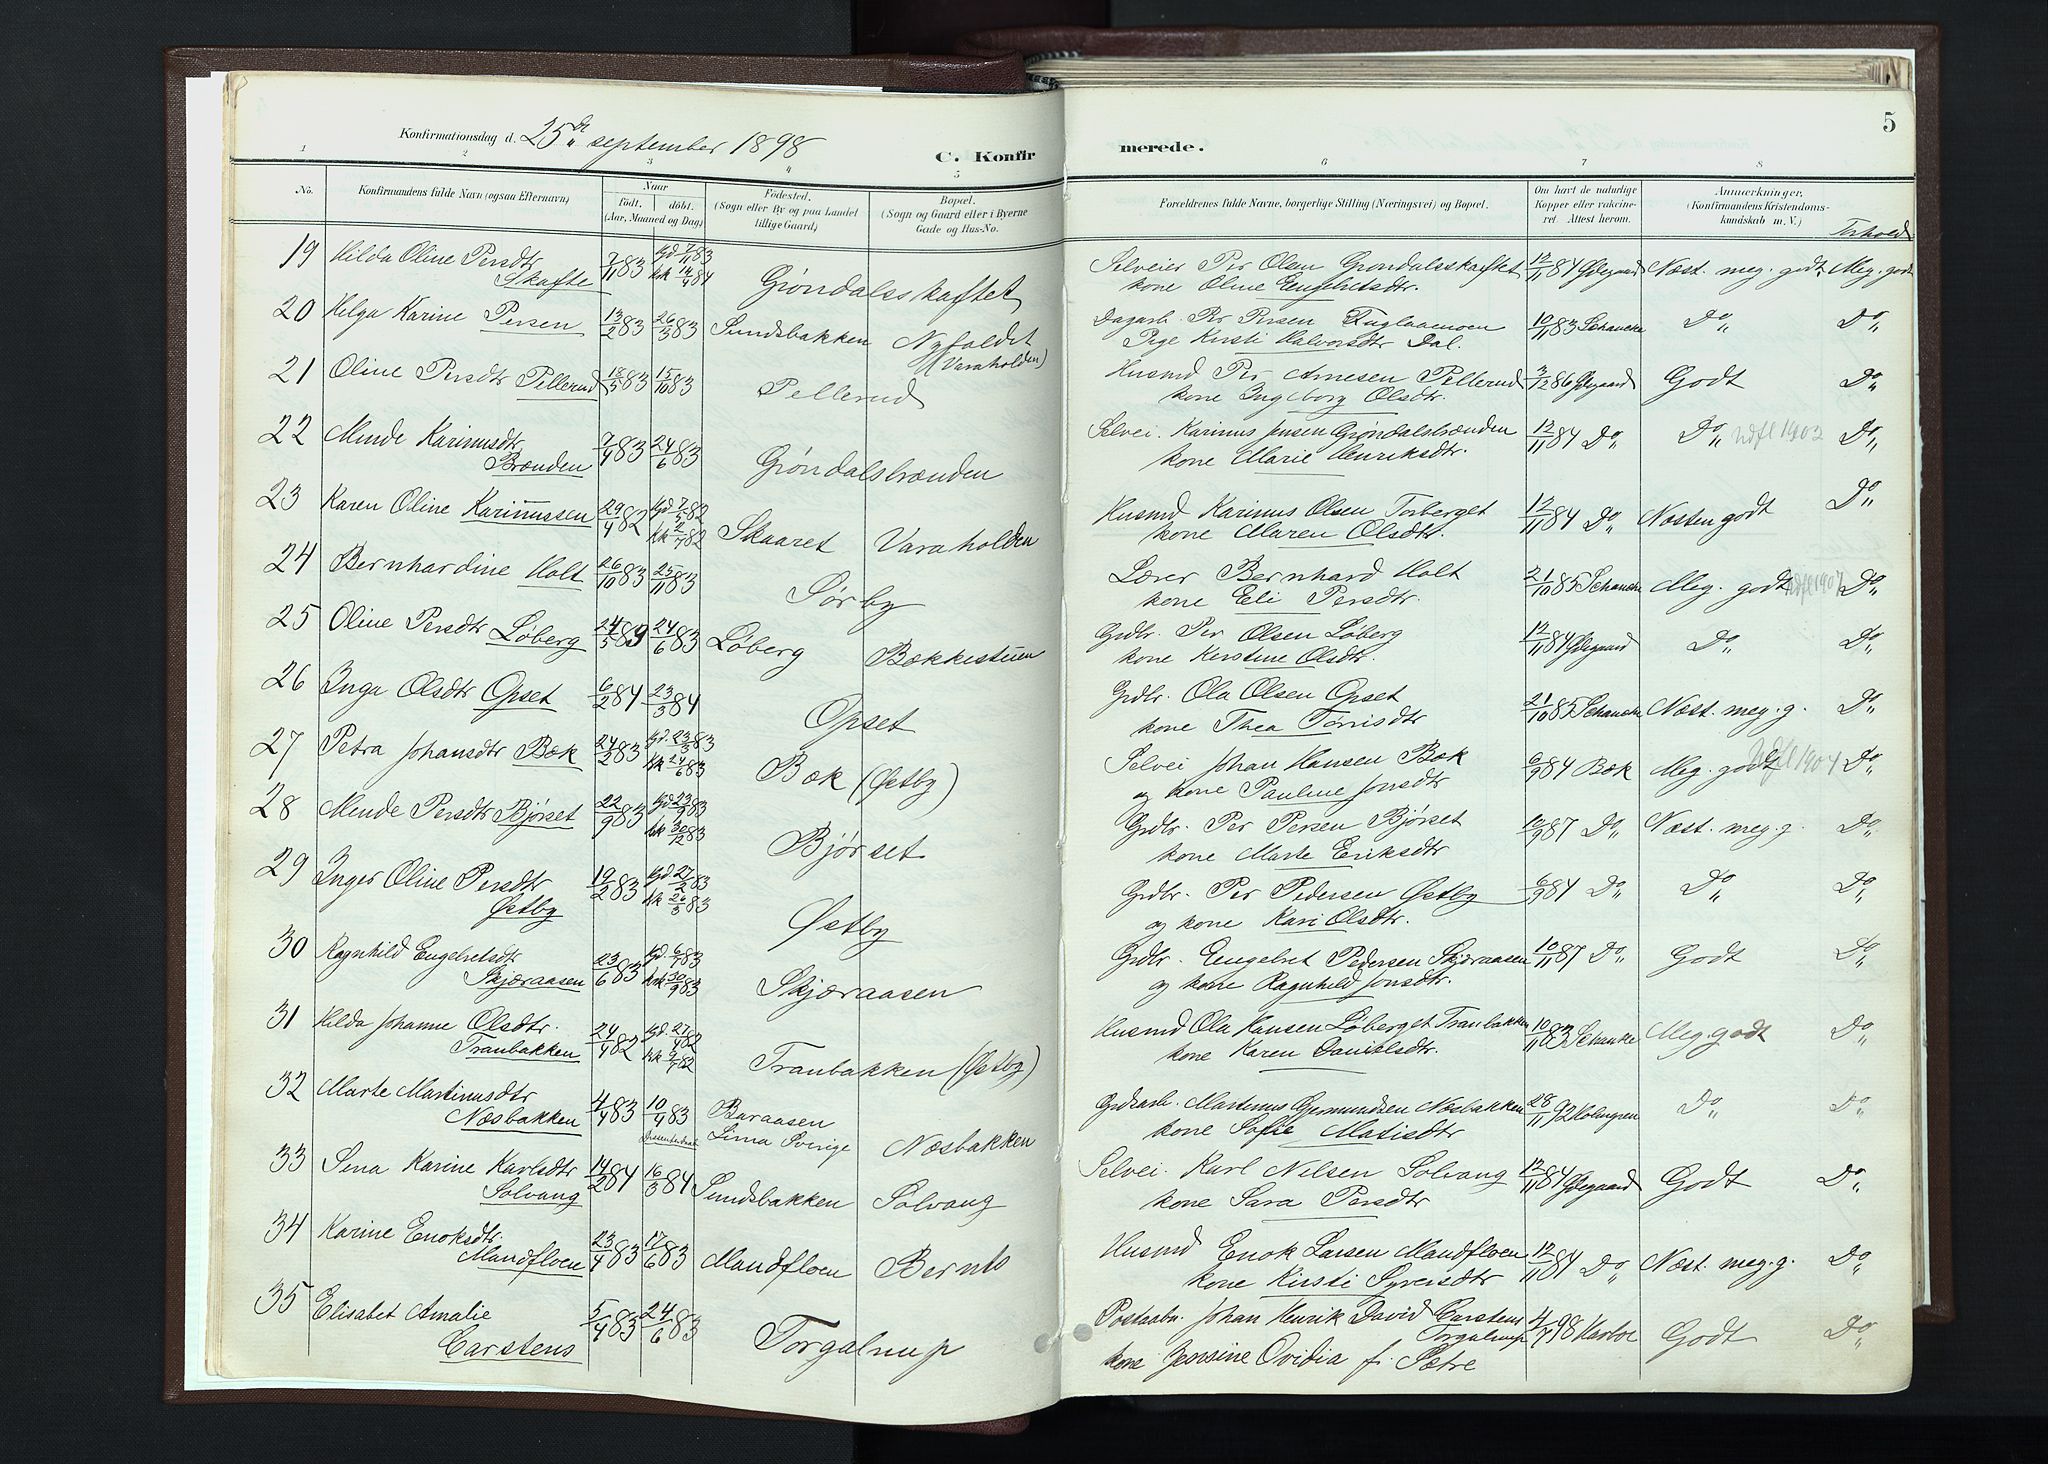 Konfirmationsdag d. 25de september 1898
C. Konfirmerede.
5
1 2 3 4 5 6 7 8
No. Konfirmandens fulde Navn (ogsaa Efternavn) Naar født. døbt. (Aar, Maaned og Dag) Fødested. (Sogn eller By og paa Landet tillige Gaard) Bopæl. (Sogn og Gaard eller i Byerne Gade og Hus-No. Forældrenes fulde Navne, borgerlige Stilling (Næringsvei) og Bopæl. Om havt de naturlige Kopper eller vakcineret. Attest herom. Anmærkninger. (Konfirmandens Kristendomskundskab m. V.) Forhold
19 Hilda Oline Persdtr Skafte 7/11 83 Gd. 7/11 83 Kk 14/4 84 Grøndalsskaftet Selveier Per Olsen Grøndalsskaftet kone Oline Engebretsdtr. 12/11 84 Ødegaard Næst. meg. godt Meg. godt
20 Helga Karine Persen 13/2 83 26/3 83 Sundsbakken Nyfaldet (Varaholden) Dagarb. Per Persen Fuglaamoen Pige Kirsti Halvorsdtr Dal. 10/11 83 Schancke Do Do
21 Oline Persdtr Pellerud 18/5 83 15/10 83 Pellerud Husmd Per Arnesen Pellerud kone Ingeborg Olsdtr. 3/12 86 Ødegaard Godt Do
22 Minde Karinusdtr Brænden 7/4 83 24/6 83 Grøndalsbrænden Selvei. Karinus Jensen Grøndalsbrænden kone Marie Henriksdtr. 12/11 84 Do Do Udfl 1902 Do
23 Karen Oline Karinussen 29/4 82 Gd 7/5 82 kk 2/7 82 Skaaret Varaholden Husmd Karinus Olsen Torberget kone Maren Olsdtr. 12/11 84 Do Næsten godt Do
24 Bernhardine Holt 26/10 83 25/11 83 Sørby Lærer Bernhard Holt kone Eli Persdtr. 21/10 85 Schancke Meg. godt Udfl 1907 Do
25 Oline Persdtr Løberg 24/5 83 24/6 83 Løberg Bækkestuen Grdbr. Per Olsen Løberg kone Kerstine Olsdtr. 12/11 84 Ødegaard Do Do
26 Inga Olsdtr Opset 6/2 84 23/3 84 Opset Grdbr. Ola Olsen Opset kone Thea Tørrisdtr 21/10 85 Schancke Næst. meg. g. Do
27 Petra Johansdtr Bæk 24/2 83 Gd. 23/3 83 Kk 24/6 83 Bæk (Østby) Selvei Johan Hansen Bæk og kone Pauline Jonsdtr 6/9 84 Bæk Meg. godt Udfl 1904 Do
28 Minde Persdtr Bjørset 22/9 83 Gd 23/9 83 kk 30/12 83 Bjørset Grdbr. Per Persen Bjørset kone Marte Eriksdtr 10/9 87 Do Næst. meg. g. Do
29 Inger Oline Persdtr Østby 19/2 83 Gd. 27/2 83 kk 26/3 83 Østby Grdbr. Per Pedersen Østby og kone Kari Olsdtr. 6/9 84 Do Do Do
30 Ragnhild Engebretsdtr Skjæraasen 23/6 83 Gd. 6/7 83 kk 30/9 83 Skjæraasen Grdbr. Engebret Pedersen Skjæraasen og kone Ragnhild Jonsdtr. 10/11 87 Do Godt Do
31 Hilda Johanne Olsdtr. Tranbakken 24/4 82 Gd. 27/4 82 kk 9/7 82 Tranbakken (Østby) Husmd Ola Hansen Løberget Tranbakken kone Karen Danielsdtr. 10/11 83 Schancke Meg. godt Do
32 Marte Martinusdtr Næsbakken 4/4 83 10/4 83 Baraasen Lima Sverige Næsbakken Grdarb. Martinus Gjermundsen Næsbakken kone Sofie Matisdtr 28/11 92 Holmgren Do Do
33 Sina Karine Karlsdtr Solvang 14/2 84 16/3 84 Sundsbakken Sølvang Selvei. Karl Nilsen Solvang kone Sara Persdtr 12/11 84 Ødegaard Godt Do
34 Karine Enoksdtr. Mandfloen 23/4 83 17/6 83 Mandfloen Bernts Husmd Enok Larsen Mandfloen kone Kirsti Syversdtr 12/11 84 Do Næst. meg. g. Do
35 Elisabet Amalie Carstens 5/4 83 24/6 83 Torgalrup Postaabn. Johan Henrik David Carstens Torgalrup kone Jensine Ovidia f. Sætre 4/7 98 Karboe Godt Do